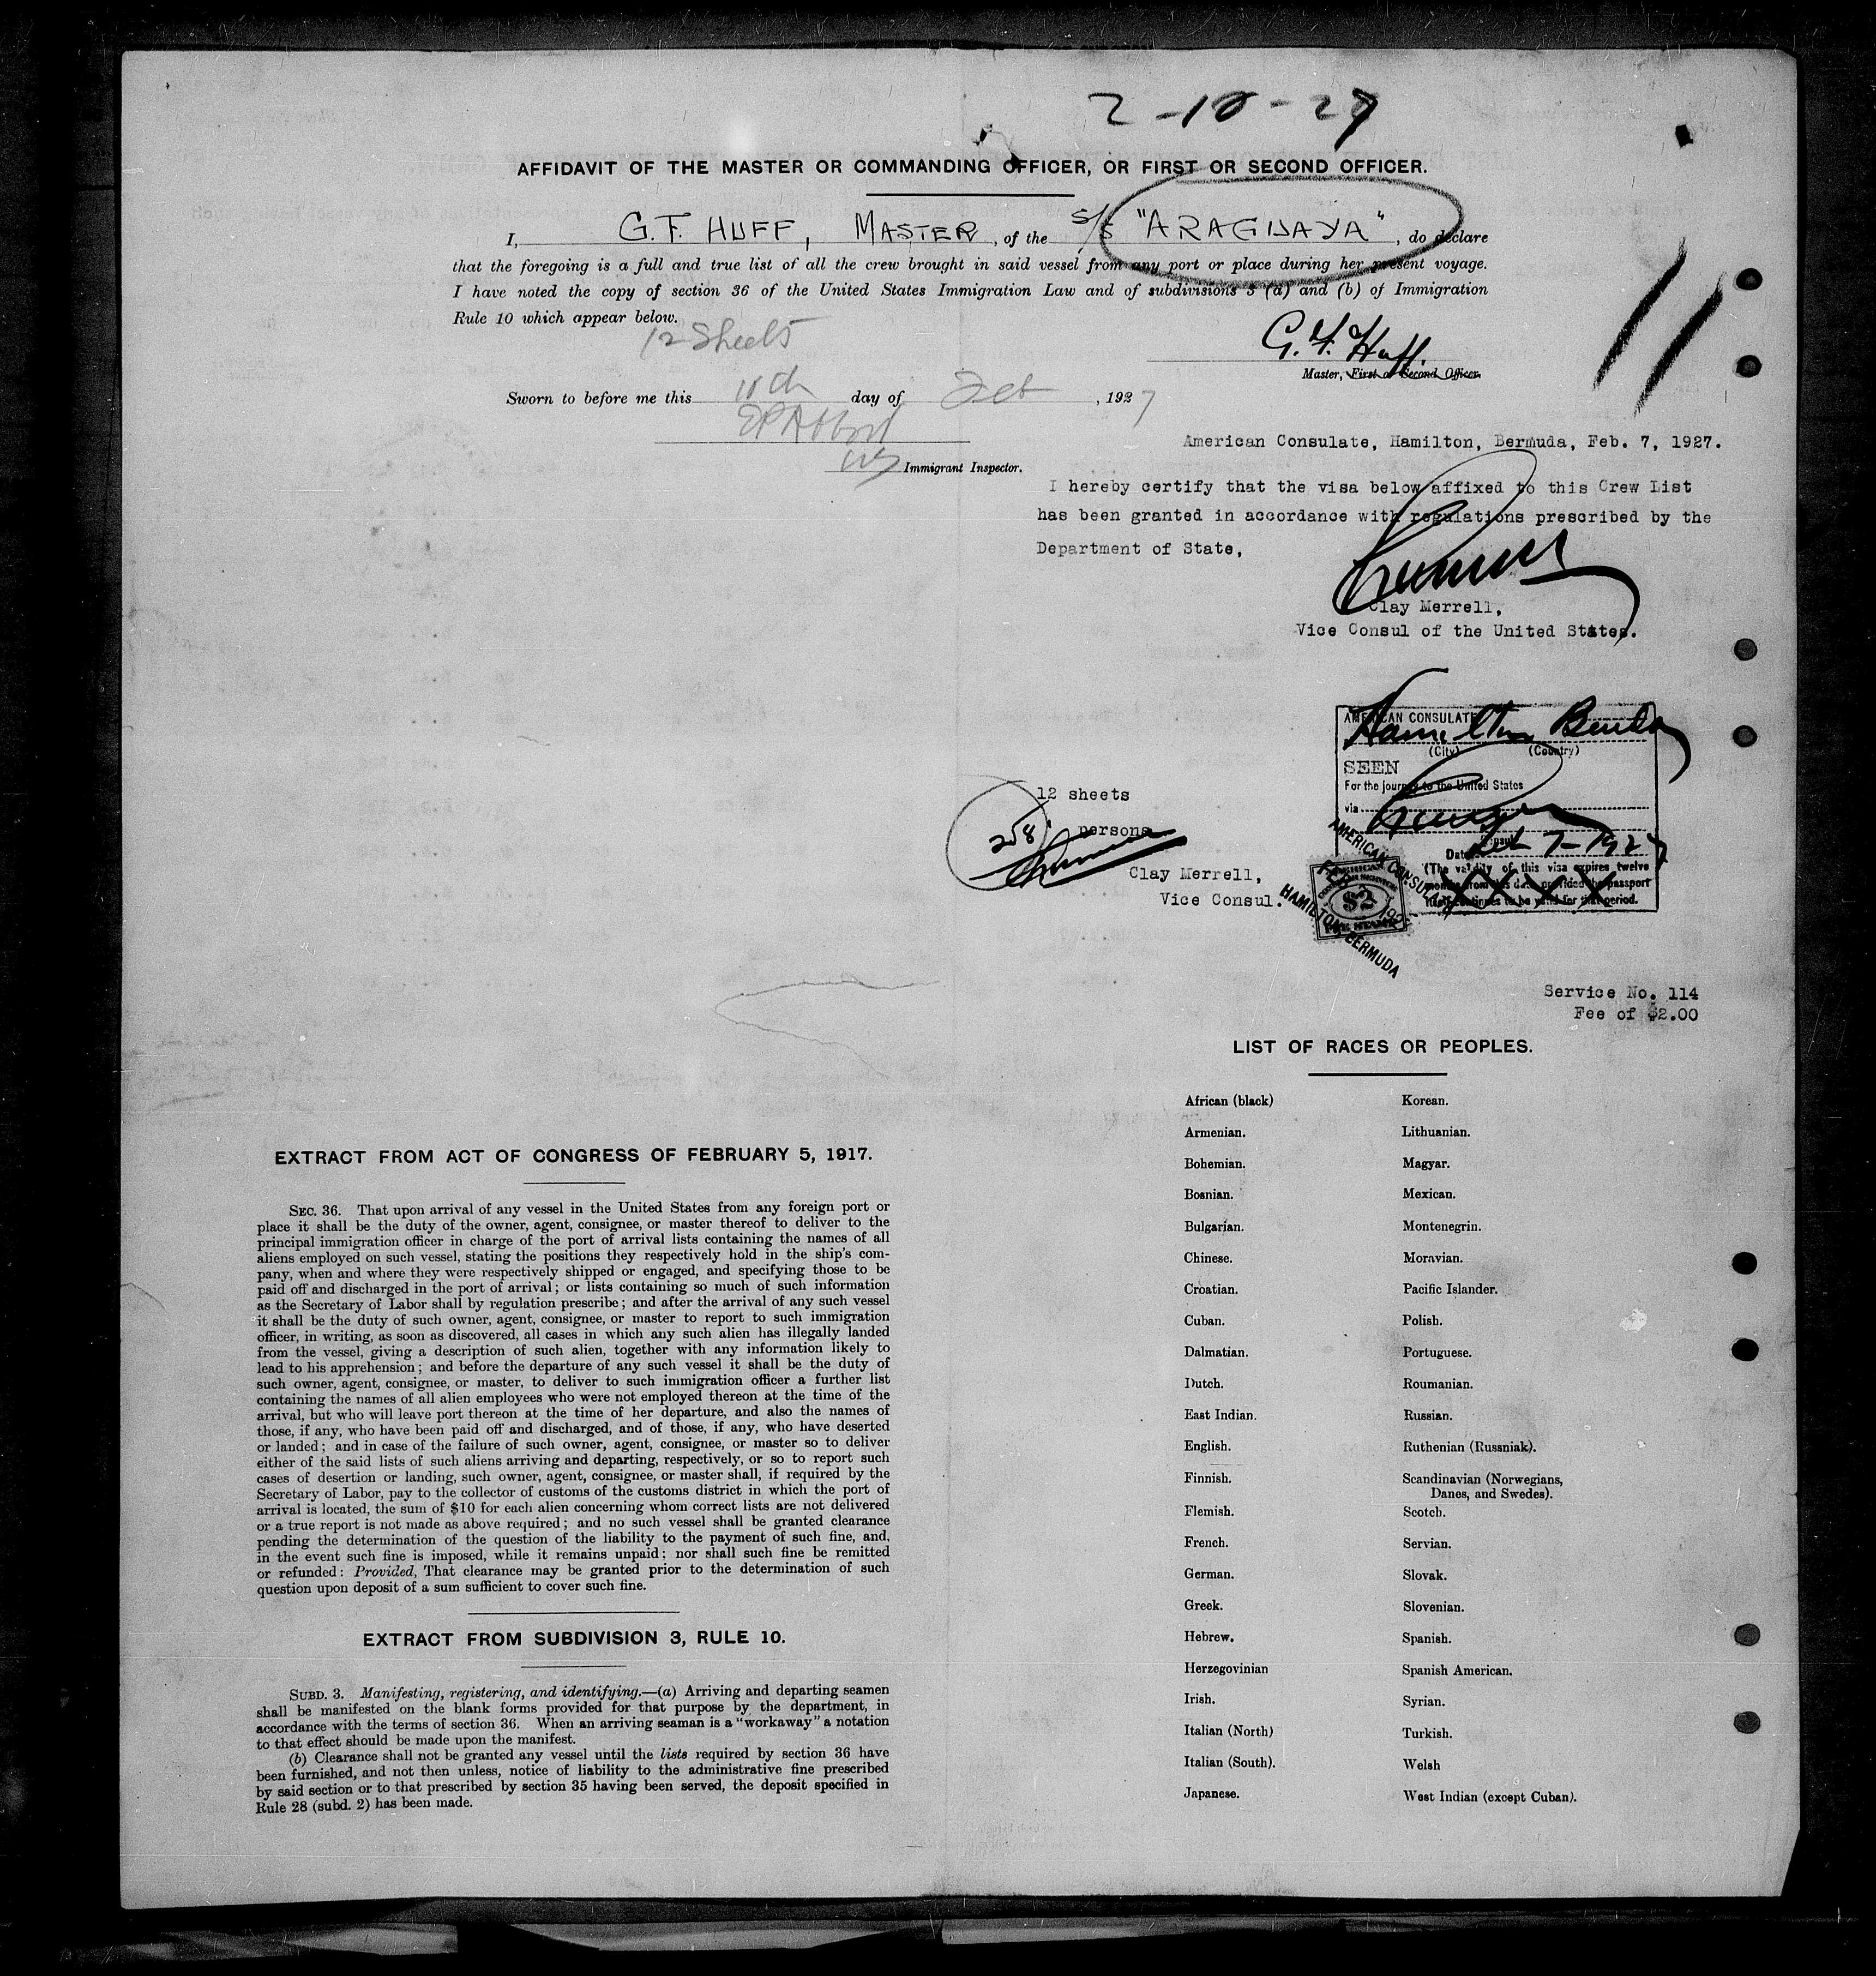 2-10-27
AFFIDAVIT OF THE MASTER OR COMMANDING OFFICER, OR FIRST OR SECOND OFFICER.
I, G.F. HUFF, MASTER, of the S/S "ARAGUAYA", do declare
that the foregoing is a full and true list of all the crew brought in said vessel from any port or place during her present voyage.
I have noted the copy of section 36 of the United States Immigration Law and of subdivisions 3 (a) and (b) of Immigration
Rule 10 which appear below.
12 Sheets
11
G. F. Huff.
Master, First or Second Officer.
Sworn to before me this day of Feb, 1927
Immigrant Inspector.
American Consulate, Hamilton, Bermuda, Feb. 7, 1927.
I hereby certify that the visa below affixed to this Crew List
has been granted in accordance with regulations prescribed by the
Department of State,
Clay Merrell,
Vice Consul of the United States.
AMERICAN CONSULATE
Hamilton
(City) (Country)
SEEN
For the journey to the United States
via
Date Feb 7-1927
(The validity of this visa expires twelve
months from this date provided the passport
itself continues to be valid for that period.
XXXX
AMERICAN CONSULATE
HAMILTON, BERMUDA
$2
FEE STAMP
12 sheets
258 persons
Clay Merrell,
Vice Consul.
Service No. 114
Fee of $2.00
EXTRACT FROM ACT OF CONGRESS OF FEBRUARY 5, 1917.
SEC. 36. That upon arrival of any vessel in the United States from any foreign port or
place it shall be the duty of the owner, agent, consignee, or master thereof to deliver to the
principal immigration officer in charge of the port of arrival lists containing the names of all
aliens employed on such vessel, stating the positions they respectively hold in the ship's com-
pany, when and where they were respectively shipped or engaged, and specifying those to be
paid off and discharged in the port of arrival; or lists containing so much of such information
as the Secretary of Labor shall by regulation prescribe; and after the arrival of any such vessel
it shall be the duty of such owner, agent, consignee, or master to report to such immigration
officer, in writing, as soon as discovered, all cases in which any such alien has illegally landed
from the vessel, giving a description of such alien, together with any information likely to
lead to his apprehension; and before the departure of any such vessel it shall be the duty of
such owner, agent, consignee, or master, to deliver to such immigration officer a further list
containing the names of all alien employees who were not employed thereon at the time of the
arrival, but who will leave port thereon at the time of her departure, and also the names of
those, if any, who have been paid off and discharged, and of those, if any, who have deserted
or landed; and in case of the failure of such owner, agent, consignee, or master so to deliver
either of the said lists of such aliens arriving and departing, respectively, or so to report such
cases of desertion or landing, such owner, agent, consignee, or master shall, if required by the
Secretary of Labor, pay to the collector of customs of the customs district in which the port of
arrival is located, the sum of $10 for each alien concerning whom correct lists are not delivered
or a true report is not made as above required; and no such vessel shall be granted clearance
pending the determination of the question of the liability to the payment of such fine, and,
in the event such fine is imposed, while it remains unpaid; nor shall such fine be remitted
or refunded: Provided, That clearance may be granted prior to the determination of such
question upon deposit of a sum sufficient to cover such fine.
EXTRACT FROM SUBDIVISION 3, RULE 10.
SUBD. 3. Manifesting, registering, and identifying.—(a) Arriving and departing seamen
shall be manifested on the blank forms provided for that purpose by the department, in
accordance with the terms of section 36. When an arriving seaman is a "workaway" a notation
to that effect should be made upon the manifest.
(b) Clearance shall not be granted any vessel until the lists required by section 36 have
been furnished, and not then unless, notice of liability to the administrative fine prescribed
by said section or to that prescribed by section 35 having been served, the deposit specified in
Rule 28 (subd. 2) has been made.
LIST OF RACES OR PEOPLES.
African (black) Korean.
Armenian. Lithuanian.
Bohemian. Magyar.
Bosnian. Mexican.
Bulgarian. Montenegrin.
Chinese. Moravian.
Croatian. Pacific Islander.
Cuban. Polish.
Dalmatian. Portuguese.
Dutch. Roumanian.
East Indian. Russian.
English. Ruthenian (Russniak).
Finnish. Scandinavian (Norwegians,
Danes, and Swedes).
Flemish. Scotch.
French. Servian.
German. Slovak.
Greek. Slovenian.
Hebrew. Spanish.
Herzegovinian Spanish American.
Irish. Syrian.
Italian (North) Turkish.
Italian (South). Welsh
Japanese. West Indian (except Cuban).